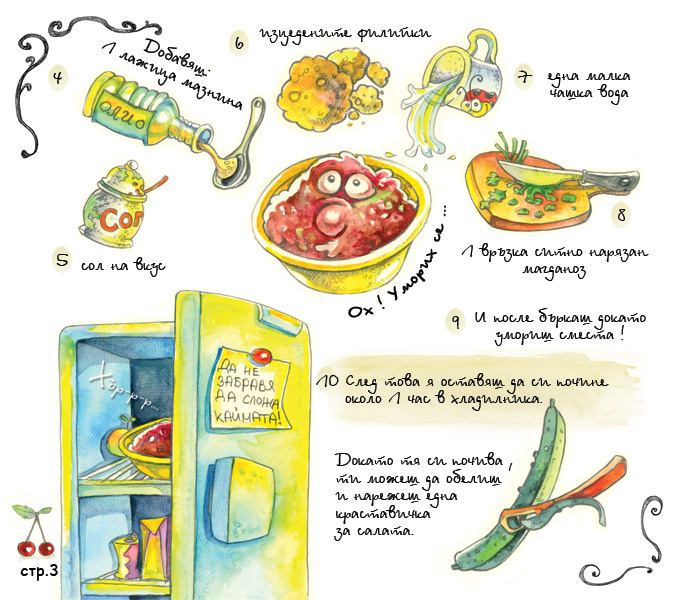 4
Добавяш:
1 лажица мазнина
ОЛИО
6
изцедените филийки
7
една малка
чашка вода
5
Сол
сол на вкус
Ох! Уморих се ...
8
1 връзка ситно нарязан
магданоз
9
И после бъркаш докато
умориш сместа!
Хър-р-р...
ДА НЕ
ЗАБРАВЯ
ДА СЛОЖА
КАЙМАТА!
10 След това я оставяш да си почине
около 1 час в хладилника.
Докато тя си почива,
ти можеш да обелиш
и нарежеш една
краставичка
за салата.
стр.3